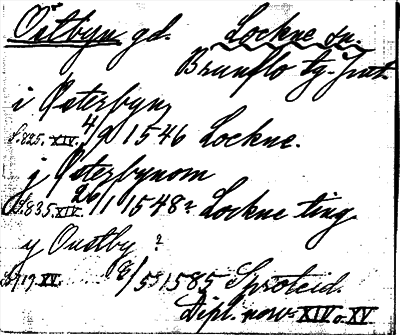 Östbyn gd. Lockne sn.
Brunflo tg. Jmt.
i Österbyn,
S. 825. XIV. 4/9 1546 Lockne.
j Österbynom
S. 835. XIV. 26/1 1548 Lockne ting
y Oustby ?
S. 719. XV. 8/5 1585 Sproteid.
Dipl. norv. XIV o. XV.